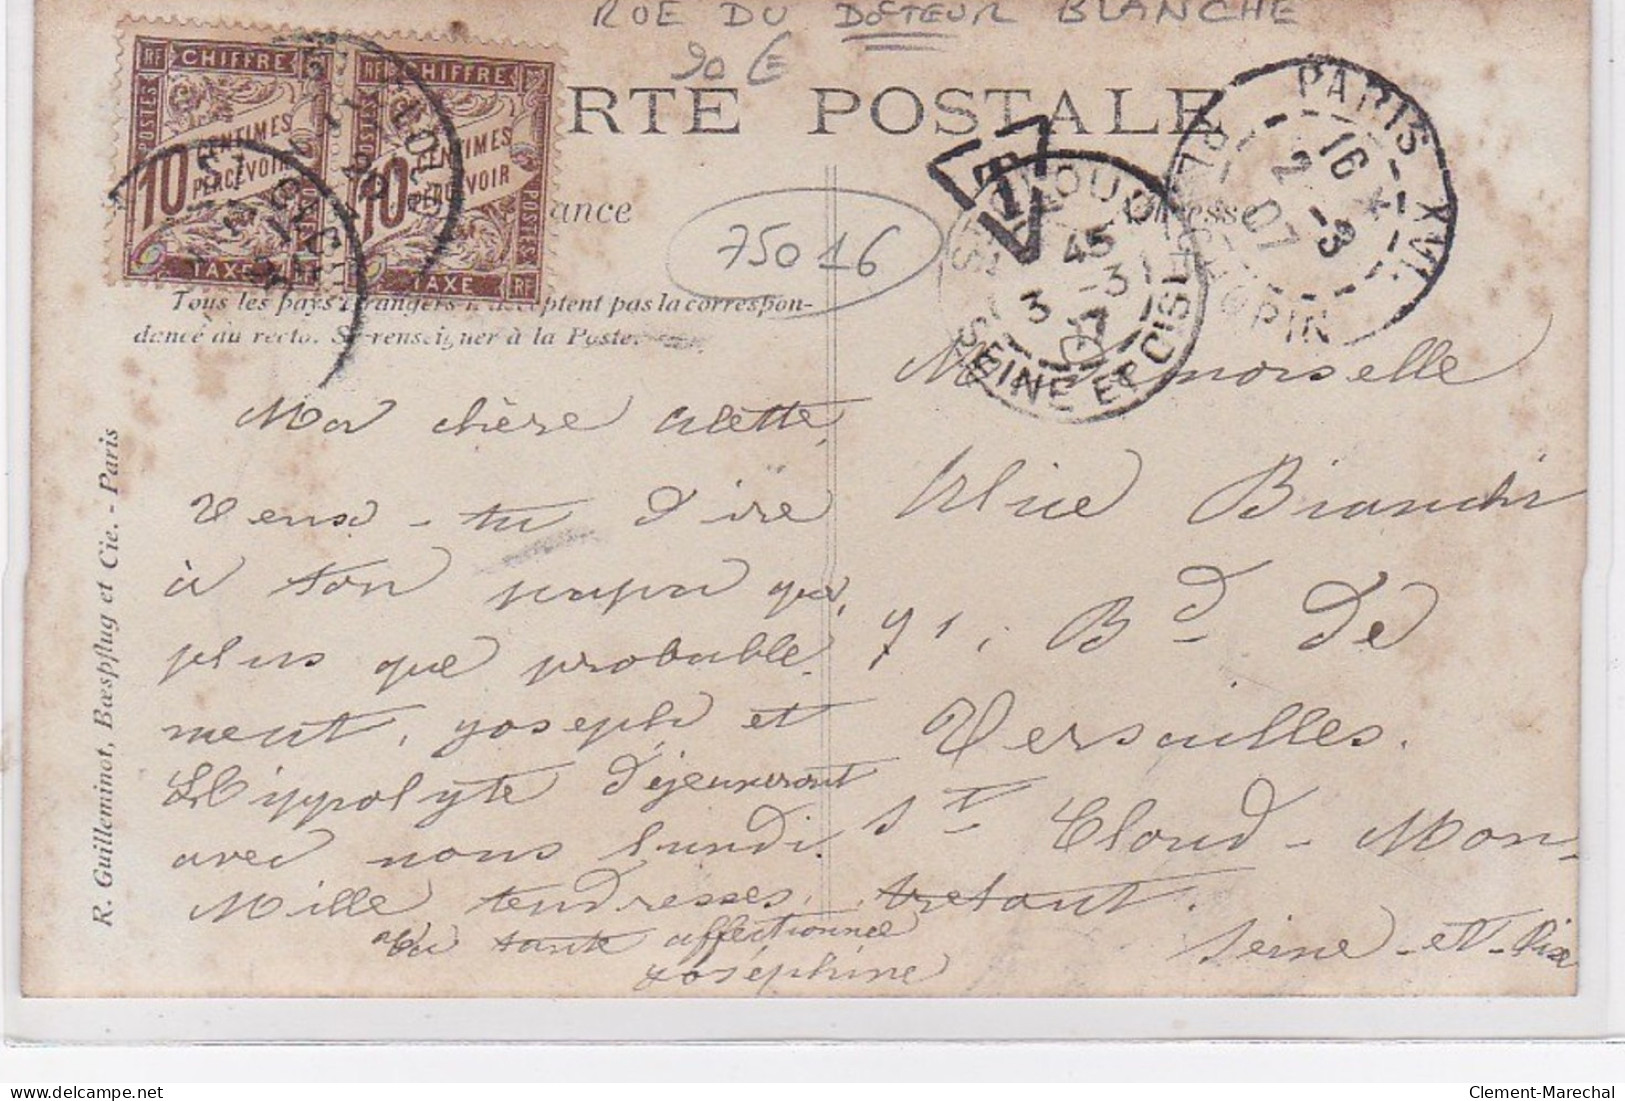 RUE DU DOCTEUR BLANCHE
90 €
RTE POSTALE
RF CHIFFRE
POSTES
10 CENTIMES
PERCEVOIR
TAXE
RF CHIFFRE
10 CENTIMES
PERCEVOIR
POSTES
TAXE RF
ance
75016
T
PARIS - XVI
16
2 -3
07
PL CHOPIN
ST CLOUD
45
3 -3
07
SEINE ET OISE
Tous les pays étrangers n'acceptent pas la correspon-
dance au recto. Se renseigner à la Poste.
R. Guilleminot, Bœspflug et Cie. - Paris
Ma chère Alette,
Veux-tu dire
à ton papa que,
plus que probable-
ment, Joseph et
Hippolyte déjeuneront
avec nous lundi.
Mille tendresses.
Ta tante affectionnée
Joséphine
Mademoiselle
Alice Bianchi
71, Bd de
Versailles.
St Cloud - Mon-
tretout.
Seine-et-Oise
Clement-Marechal